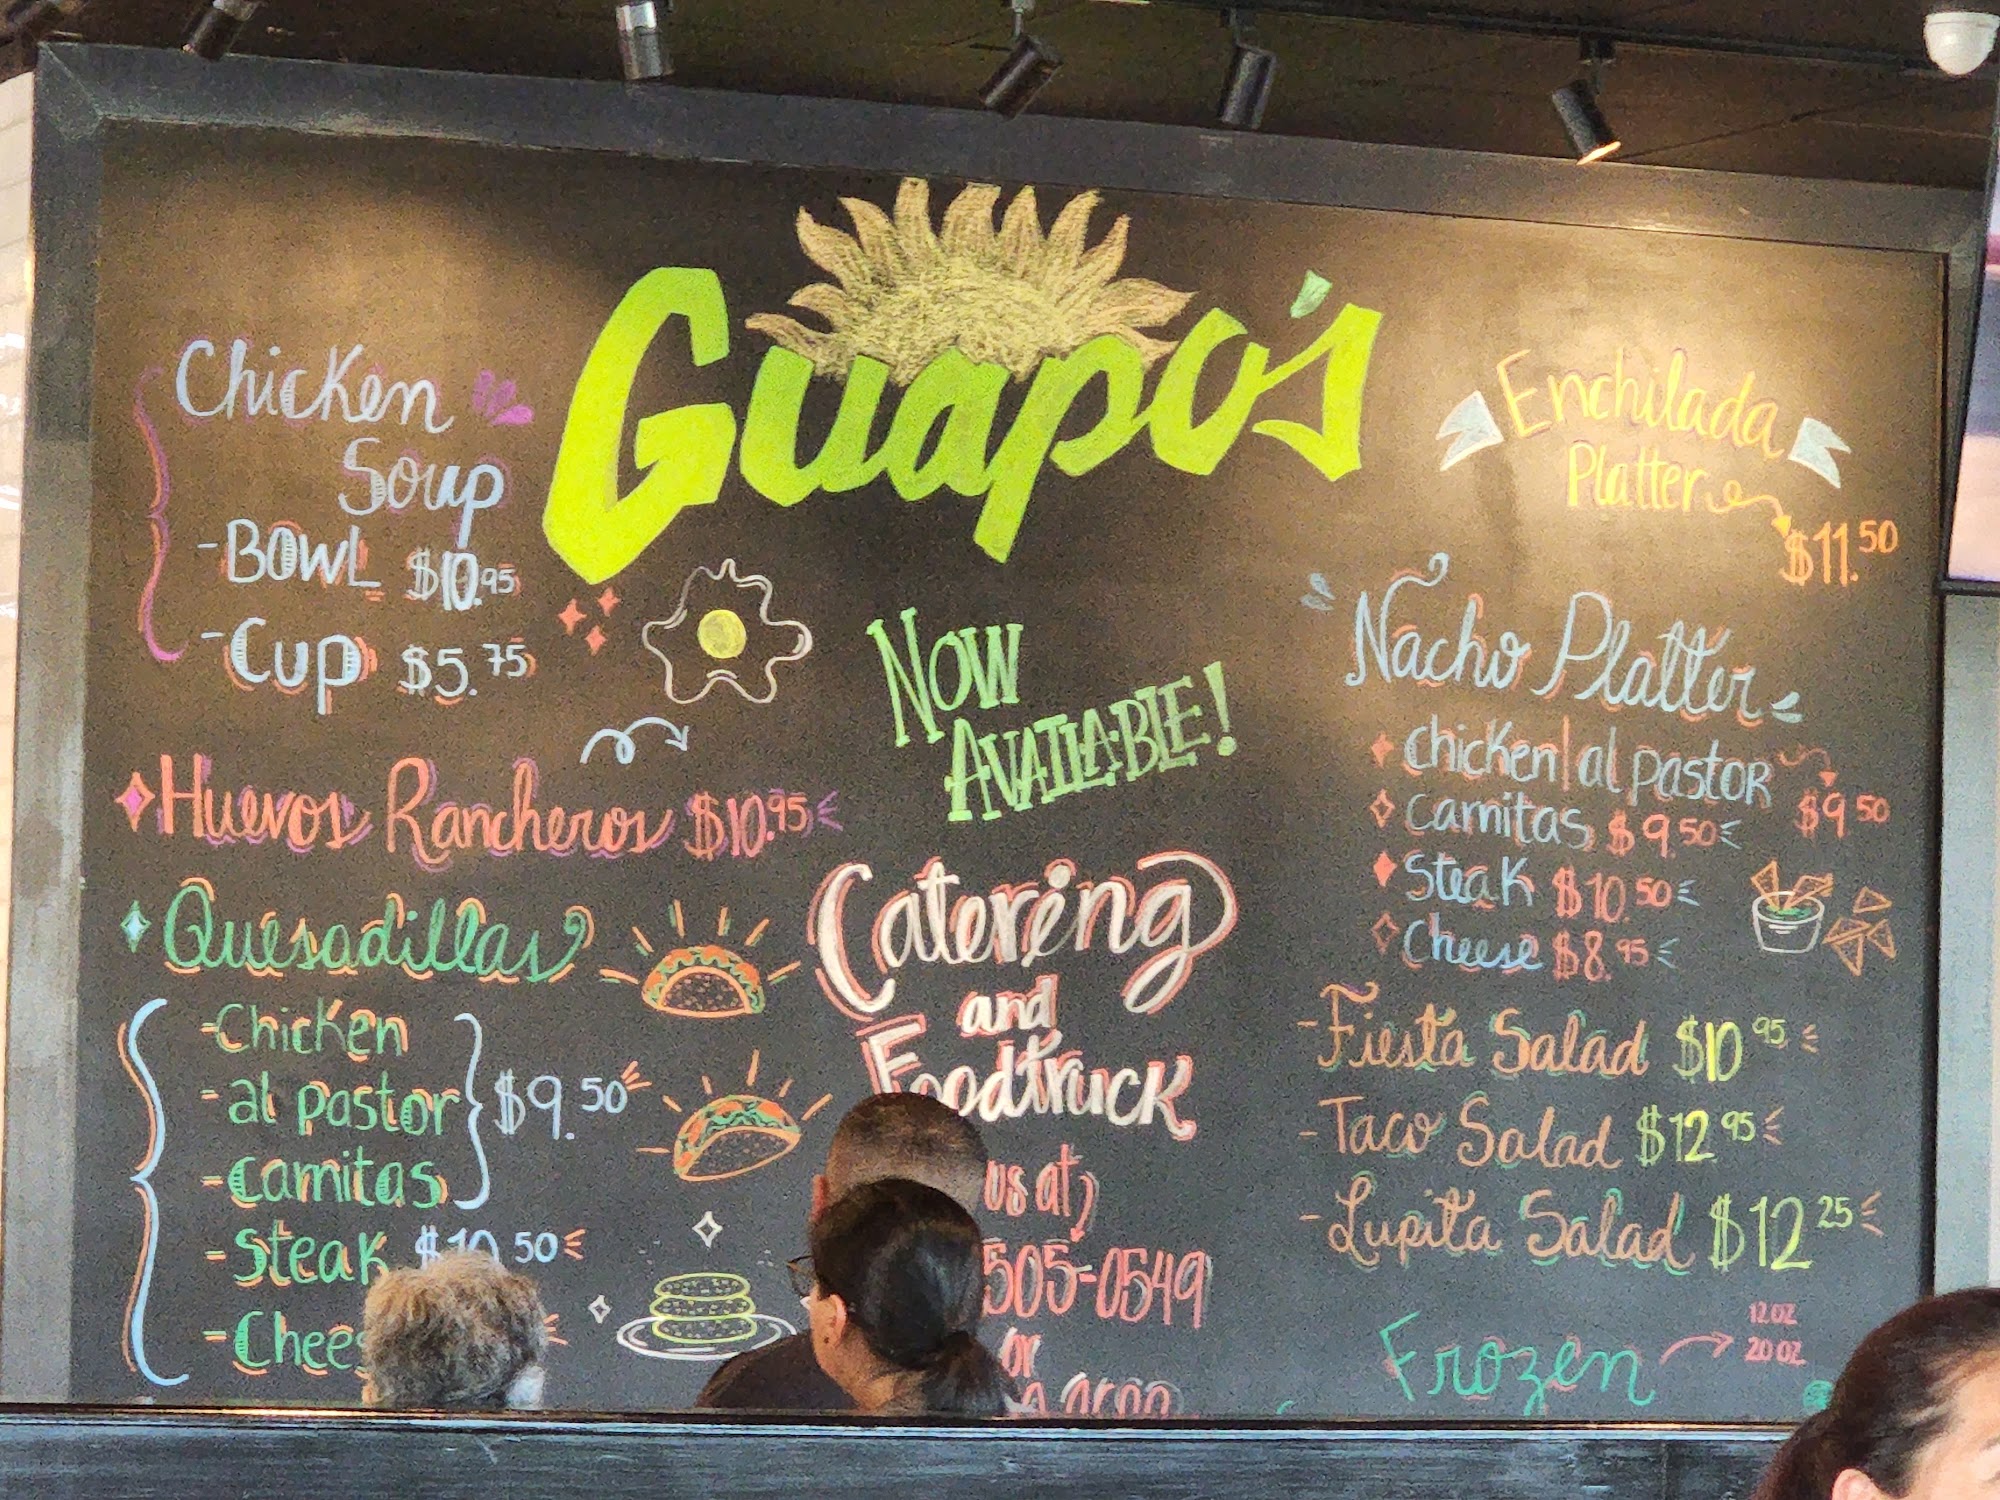 Guapo's
Chicken
Soup
-Bowl $10.95
-Cup $5.75
Huevos Rancheros $10.95
Quesadillas
-Chicken
-al pastor
-Carnitas
$9.50
-Steak $10.50
-Chees
Now
Available!
Catering
and
Foodtruck
us at
505-0549
or
Enchilada
Platter
$11.50
Nacho Platter
chicken|al pastor
$9.50
Carnitas $9.50
Steak $10.50
Cheese $8.95
-Fiesta Salad $10.95
-Taco Salad $12.95
-Lupita Salad $12.25
Frozen
12 OZ
20 OZ